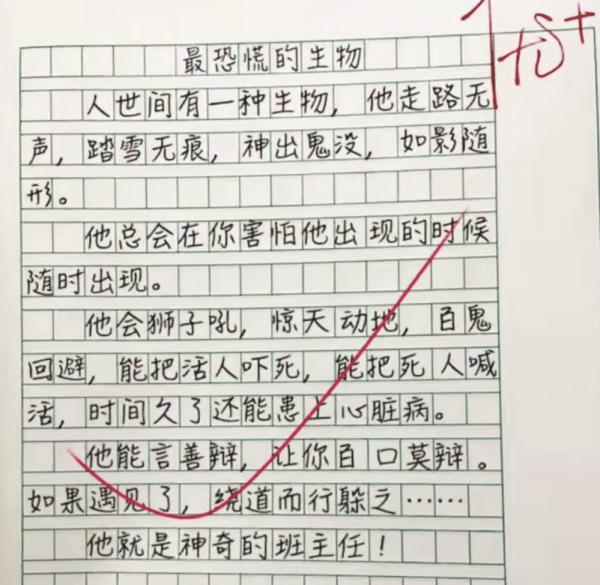 优+
最恐慌的生物
人世间有一种生物，他走路无
声，踏雪无痕，神出鬼没，如影随
形。
他总会在你害怕他出现的时候
随时出现。
他会狮子吼，惊天动地，百鬼
回避，能把活人吓死，能把死人喊
活，时间久了还能患上心脏病。
他能言善辩，让你百口莫辩。
如果遇见了，绕道而行躲之……
他就是神奇的班主任！